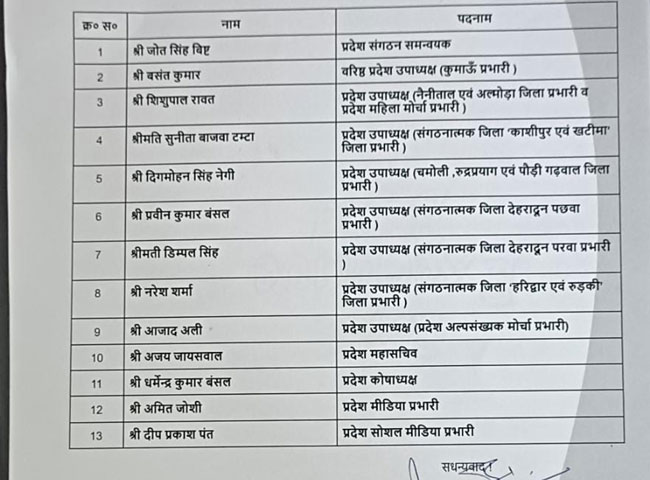 क्र० स० नाम पदनाम
1 श्री जोत सिंह बिष्ट प्रदेश संगठन समन्वयक
2 श्री बसंत कुमार वरिष्ठ प्रदेश उपाध्यक्ष (कुमाऊँ प्रभारी )
3 श्री शिशुपाल रावत प्रदेश उपाध्यक्ष (नैनीताल एवं अल्मोड़ा जिला प्रभारी व
प्रदेश महिला मोर्चा प्रभारी )
4 श्रीमति सुनीता बाजवा टम्टा प्रदेश उपाध्यक्ष (संगठनात्मक जिला 'काशीपुर एवं खटीमा'
जिला प्रभारी )
5 श्री दिगमोहन सिंह नेगी प्रदेश उपाध्यक्ष (चमोली ,रुद्रप्रयाग एवं पौड़ी गढ़वाल जिला
प्रभारी )
6 श्री प्रवीन कुमार बंसल प्रदेश उपाध्यक्ष (संगठनात्मक जिला देहरादून पछवा
प्रभारी )
7 श्रीमती डिम्पल सिंह प्रदेश उपाध्यक्ष (संगठनात्मक जिला देहरादून परवा प्रभारी
)
8 श्री नरेश शर्मा प्रदेश उपाध्यक्ष (संगठनात्मक जिला 'हरिद्वार एवं रुड़की'
जिला प्रभारी )
9 श्री आजाद अली प्रदेश उपाध्यक्ष (प्रदेश अल्पसंख्यक मोर्चा प्रभारी)
10 श्री अजय जायसवाल प्रदेश महासचिव
11 श्री धर्मेन्द्र कुमार बंसल प्रदेश कोषाध्यक्ष
12 श्री अमित जोशी प्रदेश मीडिया प्रभारी
13 श्री दीप प्रकाश पंत प्रदेश सोशल मीडिया प्रभारी
सधन्यवाद